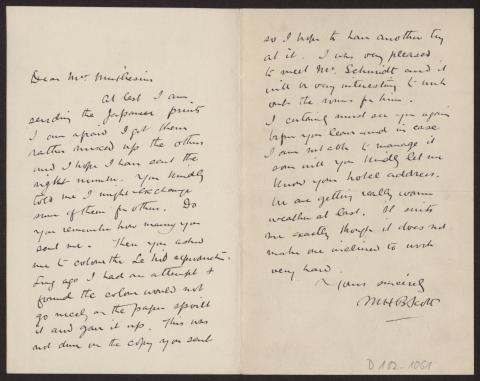 Dear Mr Muthesius
At last I am
sending the Japanese prints
I am afraid I got them
rather mixed up the others
and I hope I have sent the
right number. You kindly
told me I might exchange
some of them for others. Do
you remember how many you
sent me. Then you asked
me to colour the
long ago I had an attempt &
found the colour would not
go nicely on the paper spoilt
it and gave it up. This was
not done on the copy you sent
so I hope to have another try
at it. I was very pleased
to meet Mr. Schmidt and it
will be very interesting to work
out the rooms for him.
I certainly must see you again
before you leave and in case
I am not able to manage it
soon will you kindly let me
know your hotel address.
We are getting really warm
weather at last. It suits
me exactly though it does not
make one inclined to work
very hard.
Yours sincerely
MHBScott
D 102-1061